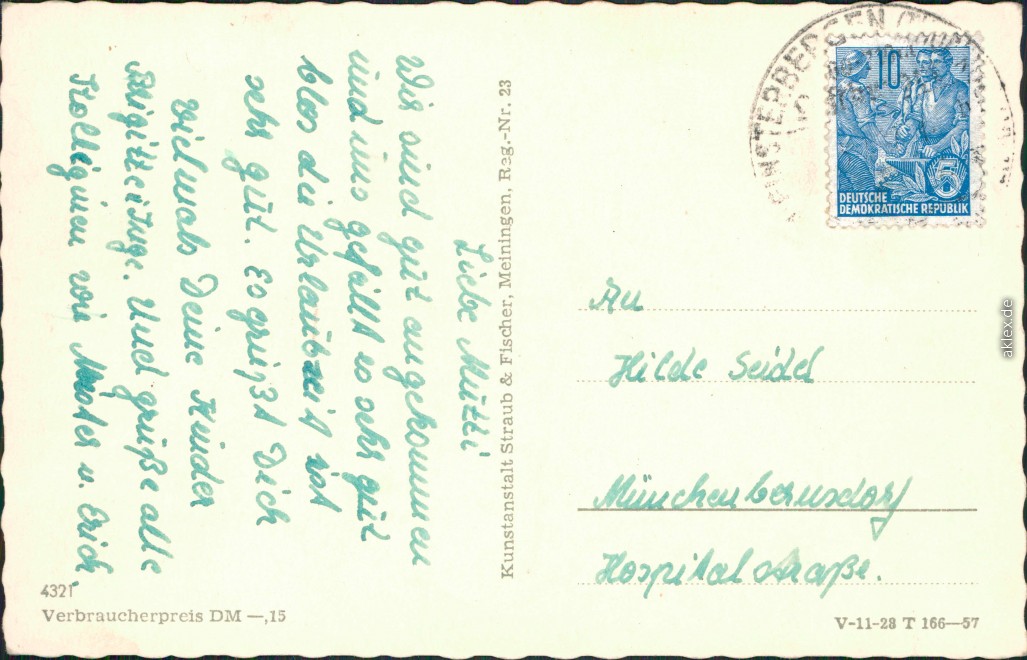 Liebe Mutti
Wir sind gut angekommen
und uns gefällt es sehr gut
blos die Urlaubzeit ist
sehr gut. Es grüßt Dich
vielmals Deine Kinder
Brigitte Inge. Und grüße alle
Kolleginen von Mutter u. Erich
4321
Verbraucherpreis DM —,15
Kunstanstalt Straub & Fischer, Meiningen, Reg.-Nr. 23
FINSTERBERGEN
10
5
DEUTSCHE
DEMOKRATISCHE REPUBLIK
An
Hilde Seidel
Münchenbernsdorf
Hospitalstraße.
V-11-28 T 166—57
aklex.de